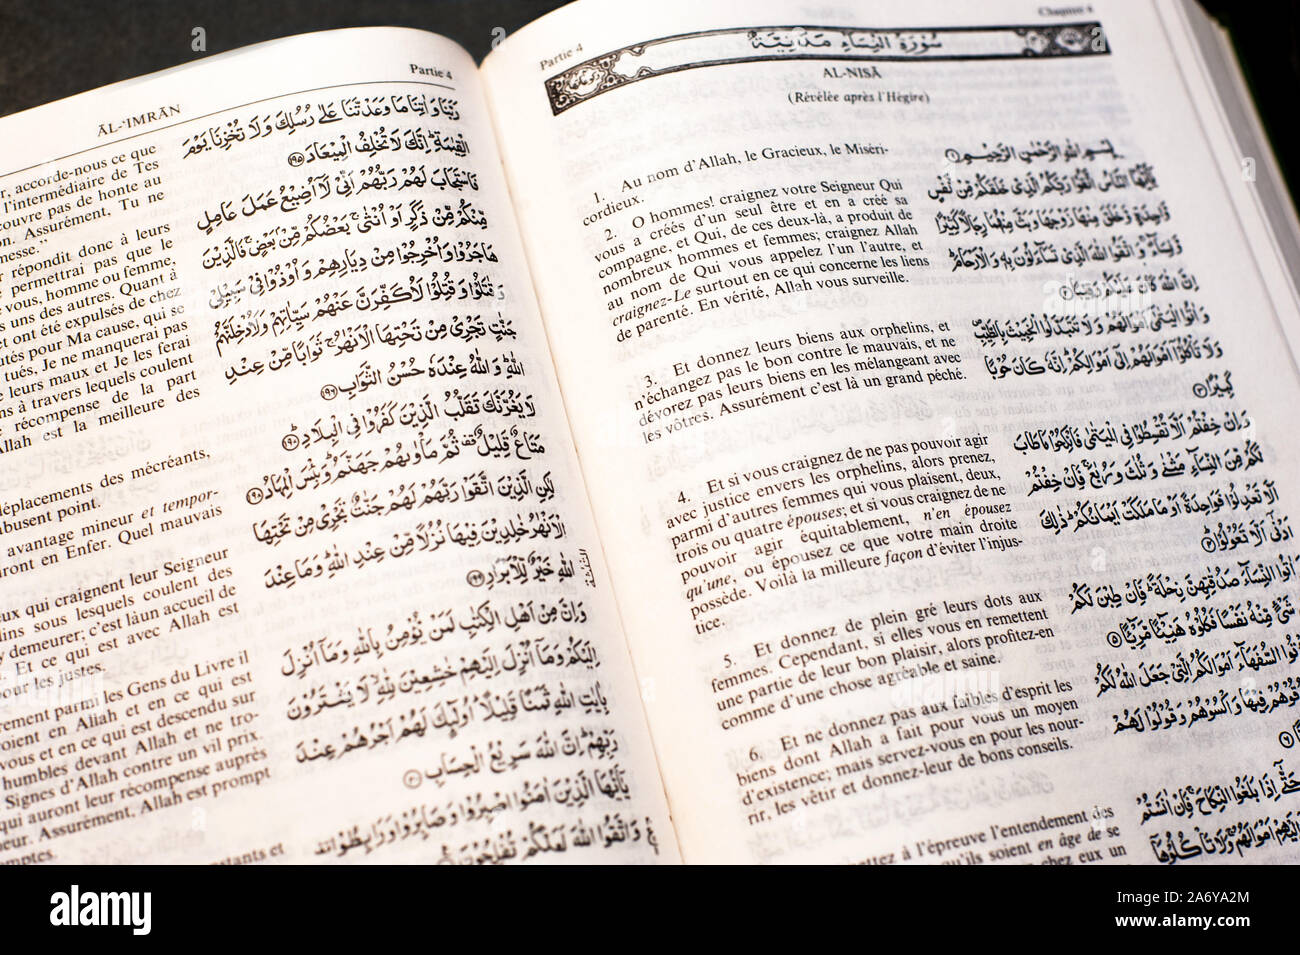 Partie 4
ĀL-‘IMRĀN
r, accorde-nous ce que
l'intermédiaire de Tes
couvre pas de honte au
on. Assurément, Tu ne
messe."
r répondit donc à leurs
e permettrai pas que le
e vous, homme ou femme,
s uns des autres. Quant à
et ont été expulsés de chez
utés pour Ma cause, qui se
tués, Je ne manquerai pas
e leurs maux et Je les ferai
ns à travers lesquels coulent
récompense de la part
Allah est la meilleure des
déplacements des mécréants,
abusent point.
avantage mineur et tempor-
ront en Enfer. Quel mauvais
eux qui craignent leur Seigneur
dins sous lesquels coulent des
y demeurer; c'est làun accueil de
Et ce qui est avec Allah est
pour les justes.
rement parmi les Gens du Livre il
roient en Allah et en ce qui est
vous et en ce qui est descendu sur
humbles devant Allah et ne tro-
Signes d'Allah contre un vil prix.
qui auront leur récompense auprès
neur. Assurément, Allah est prompt
mptes.
nstants et
رَبَّنَا وَ اٰتِنَا مَا وَعَدْتَّنَا عَلٰى رُسُلِكَ وَ لَا تُخْزِنَا يَوْمَ
الْقِيٰمَةِ ؕ اِنَّكَ لَا تُخْلِفُ الْمِيْعَادَ ۝۱۹۵
فَاسْتَجَابَ لَهُمْ رَبُّهُمْ اَنِّىْ لَاۤ اُضِيْعُ عَمَلَ عَامِلٍ
مِّنْكُمْ مِّنْ ذَكَرٍ اَوْ اُنْثٰى ۚ بَعْضُكُمْ مِّنْۢ بَعْضٍ ۚ فَالَّذِيْنَ
هَاجَرُوْا وَ اُخْرِجُوْا مِنْ دِيَارِهِمْ وَ اُوْذُوْا فِىْ سَبِيْلِىْ
وَ قٰتَلُوْا وَ قُتِلُوْا لَاُكَفِّرَنَّ عَنْهُمْ سَيِّاٰتِهِمْ وَ لَاُدْخِلَنَّهُمْ
جَنّٰتٍ تَجْرِىْ مِنْ تَحْتِهَا الْاَنْهٰرُ ۚ ثَوَابًا مِّنْ عِنْدِ
اللّٰهِ ؕ وَ اللّٰهُ عِنْدَهٗ حُسْنُ الثَّوَابِ
لَا يَغُرَّنَّكَ تَقَلُّبُ الَّذِيْنَ كَفَرُوْا فِى الْبِلَادِ ؕ
مَتَاعٌ قَلِيْلٌ ۟ ثُمَّ مَاْوٰىهُمْ جَهَنَّمُ ؕ وَ بِئْسَ الْمِهَادُ
لٰكِنِ الَّذِيْنَ اتَّقَوْا رَبَّهُمْ لَهُمْ جَنّٰتٌ تَجْرِىْ مِنْ تَحْتِهَا
الْاَنْهٰرُ خٰلِدِيْنَ فِيْهَا نُزُلًا مِّنْ عِنْدِ اللّٰهِ ؕ وَ مَا عِنْدَ
اللّٰهِ خَيْرٌ لِّلْاَبْرَارِ
وَ اِنَّ مِنْ اَهْلِ الْكِتٰبِ لَمَنْ يُّؤْمِنُ بِاللّٰهِ وَ مَاۤ اُنْزِلَ
اِلَيْكُمْ وَ مَاۤ اُنْزِلَ اِلَيْهِمْ خٰشِعِيْنَ لِلّٰهِ ۙ لَا يَشْتَرُوْنَ
بِاٰيٰتِ اللّٰهِ ثَمَنًا قَلِيْلًا ؕ اُولٰٓئِكَ لَهُمْ اَجْرُهُمْ عِنْدَ
رَبِّهِمْ ؕ اِنَّ اللّٰهَ سَرِيْعُ الْحِسَابِ
يٰۤاَيُّهَا الَّذِيْنَ اٰمَنُوا اصْبِرُوْا وَ صَابِرُوْا وَ رَابِطُوْا ۟
وَ اتَّقُوا اللّٰهَ لَعَلَّكُمْ تُفْلِحُوْنَ
Partie 4
Chapitre 4
سُوْرَةُ النِّسَآءِ مَدَنِيَّةٌ
AL-NISĀ
(Révélée après l'Hégire)
1. Au nom d'Allah, le Gracieux, le Miséri-
cordieux.
2. O hommes! craignez votre Seigneur Qui
vous a créés d'un seul être et en a créé sa
compagne, et Qui, de ces deux-là, a produit de
nombreux hommes et femmes; craignez Allah
au nom de Qui vous appelez l'un l'autre, et
craignez-Le surtout en ce qui concerne les liens
de parenté. En vérité, Allah vous surveille.
3. Et donnez leurs biens aux orphelins, et
n'échangez pas le bon contre le mauvais, et ne
dévorez pas leurs biens en les mélangeant avec
les vôtres. Assurément c'est là un grand péché.
4. Et si vous craignez de ne pas pouvoir agir
avec justice envers les orphelins, alors prenez,
parmi d'autres femmes qui vous plaisent, deux,
trois ou quatre épouses; et si vous craignez de ne
pouvoir agir équitablement, n'en épousez
qu'une, ou épousez ce que votre main droite
possède. Voilà la milleure façon d'éviter l'injus-
tice.
5. Et donnez de plein gré leurs dots aux
femmes. Cependant, si elles vous en remettent
une partie de leur bon plaisir, alors profitez-en
comme d'une chose agréable et saine.
6. Et ne donnez pas aux faibles d'esprit les
biens dont Allah a fait pour vous un moyen
d'existence; mais servez-vous en pour les nour-
rir, les vêtir et donnez-leur de bons conseils.
ettez à l'épreuve l'entendement des
qu'ils soient en âge de se
chez eux un
بِسْمِ اللّٰهِ الرَّحْمٰنِ الرَّحِيْمِ
يٰۤاَيُّهَا النَّاسُ اتَّقُوْا رَبَّكُمُ الَّذِىْ خَلَقَكُمْ مِّنْ نَّفْسٍ
وَّاحِدَةٍ وَّ خَلَقَ مِنْهَا زَوْجَهَا وَ بَثَّ مِنْهُمَا رِجَالًا كَثِيْرًا
وَّ نِسَآءً ۚ وَ اتَّقُوا اللّٰهَ الَّذِىْ تَسَآءَلُوْنَ بِهٖ وَ الْاَرْحَامَ ؕ
اِنَّ اللّٰهَ كَانَ عَلَيْكُمْ رَقِيْبًا
وَ اٰتُوا الْيَتٰمٰۤى اَمْوَالَهُمْ وَ لَا تَتَبَدَّلُوا الْخَبِيْثَ بِالطَّيِّبِ
وَ لَا تَاْكُلُوْۤا اَمْوَالَهُمْ اِلٰۤى اَمْوَالِكُمْ ؕ اِنَّهٗ كَانَ حُوْبًا
كَبِيْرًا
وَ اِنْ خِفْتُمْ اَلَّا تُقْسِطُوْا فِى الْيَتٰمٰى فَانْكِحُوْا مَا طَابَ
لَكُمْ مِّنَ النِّسَآءِ مَثْنٰى وَ ثُلٰثَ وَ رُبٰعَ ۚ فَاِنْ خِفْتُمْ
اَلَّا تَعْدِلُوْا فَوَاحِدَةً اَوْ مَا مَلَكَتْ اَيْمَانُكُمْ ؕ ذٰلِكَ
اَدْنٰۤى اَلَّا تَعُوْلُوْا
اٰتُوا النِّسَآءَ صَدُقٰتِهِنَّ نِحْلَةً ؕ فَاِنْ طِبْنَ لَكُمْ
شَىْءٍ مِّنْهُ نَفْسًا فَكُلُوْهُ هَنِيْٓـًٔا مَّرِيْٓـًٔا
تُؤْتُوا السُّفَهَآءَ اَمْوَالَكُمُ الَّتِىْ جَعَلَ اللّٰهُ لَكُمْ
قُوْهُمْ فِيْهَا وَ اكْسُوْهُمْ وَ قُوْلُوْا لَهُمْ
حَتّٰۤى اِذَا بَلَغُوا النِّكَاحَ ۚ فَاِنْ اٰنَسْتُمْ
اِلَيْهِمْ اَمْوَالَهُمْ ۚ وَ لَا تَاْكُلُوْهَاۤ
alamy
Image ID: 2A6YA2M
www.alamy.com